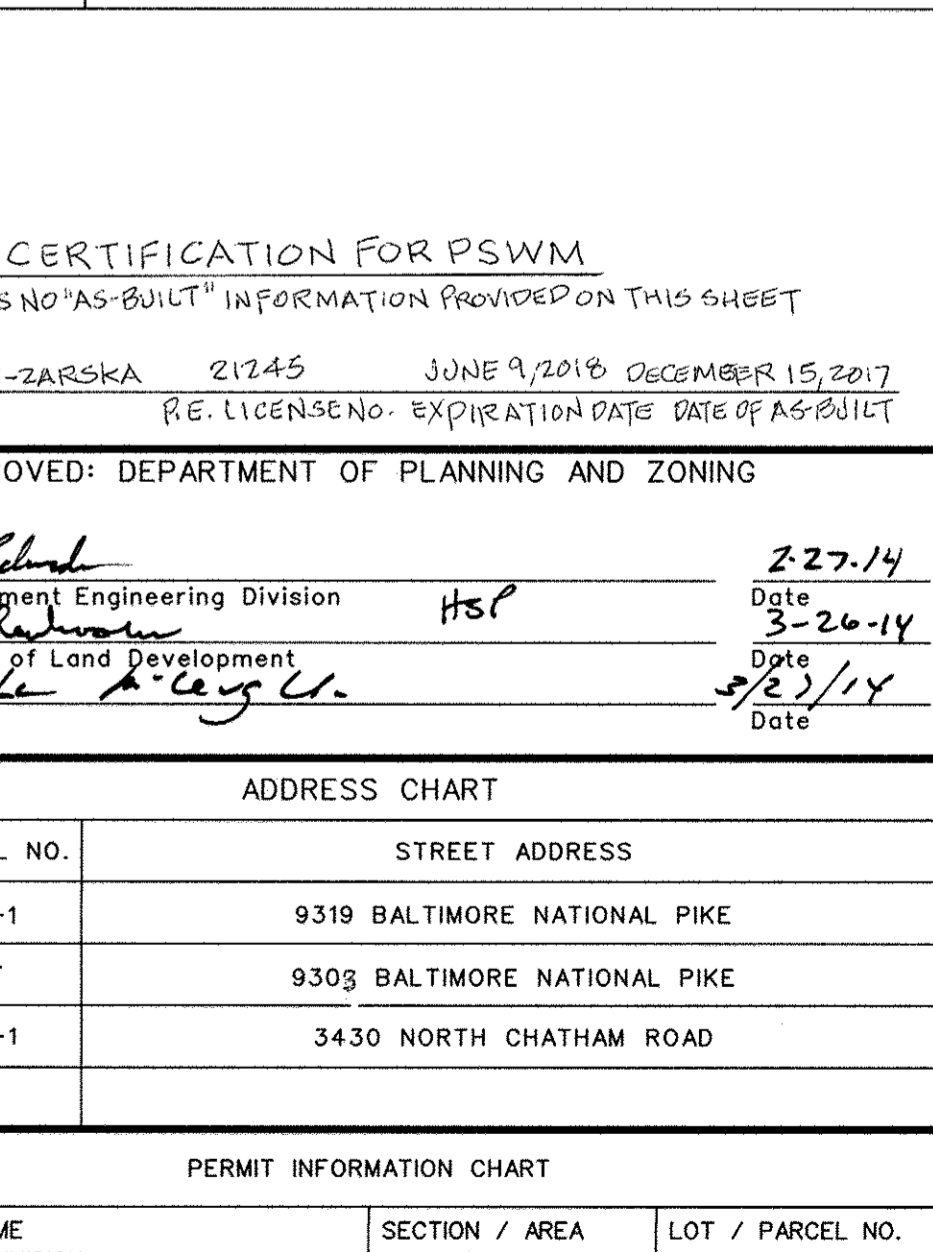 CERTIFICATION FOR PSWM
S NO "AS-BUILT" INFORMATION PROVIDED ON THIS SHEET
-ZARSKA 21245 JUNE 9, 2018 DECEMBER 15, 2017
P.E. LICENSE NO. EXPIRATION DATE DATE OF AS-BUILT
OVED: DEPARTMENT OF PLANNING AND ZONING
2-27-14
ment Engineering Division HSP Date
3-26-14
of Land Development Date
3/27/14
Date
ADDRESS CHART
L NO. STREET ADDRESS
-1 9319 BALTIMORE NATIONAL PIKE
9303 BALTIMORE NATIONAL PIKE
-1 3430 NORTH CHATHAM ROAD
PERMIT INFORMATION CHART
ME SECTION / AREA LOT / PARCEL NO.